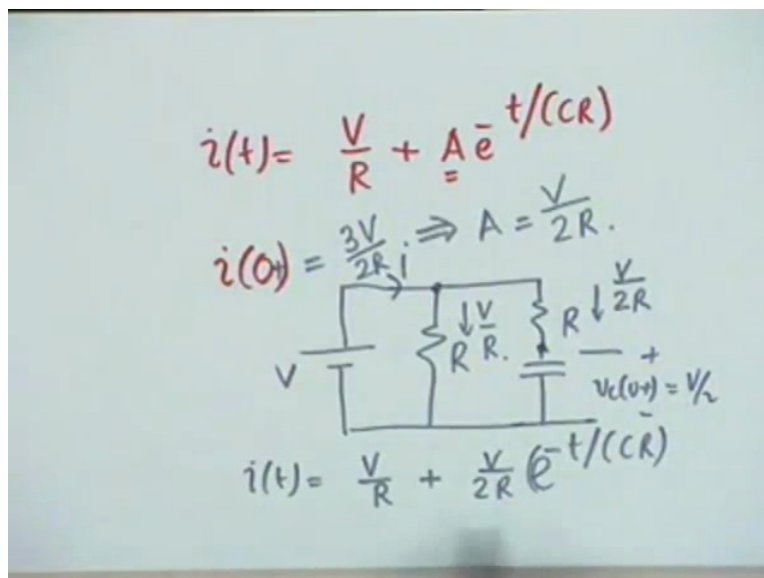 i(t) = V/R + A e^-t/(CR)
i(0+) = 3V/2R ⇒ A = V/2R.
i
V
R ↓ V/R.
R ↓ V/2R
+
vc(0+) = V/2
-
i(t) = V/R + V/2R (e^-t/(CR)